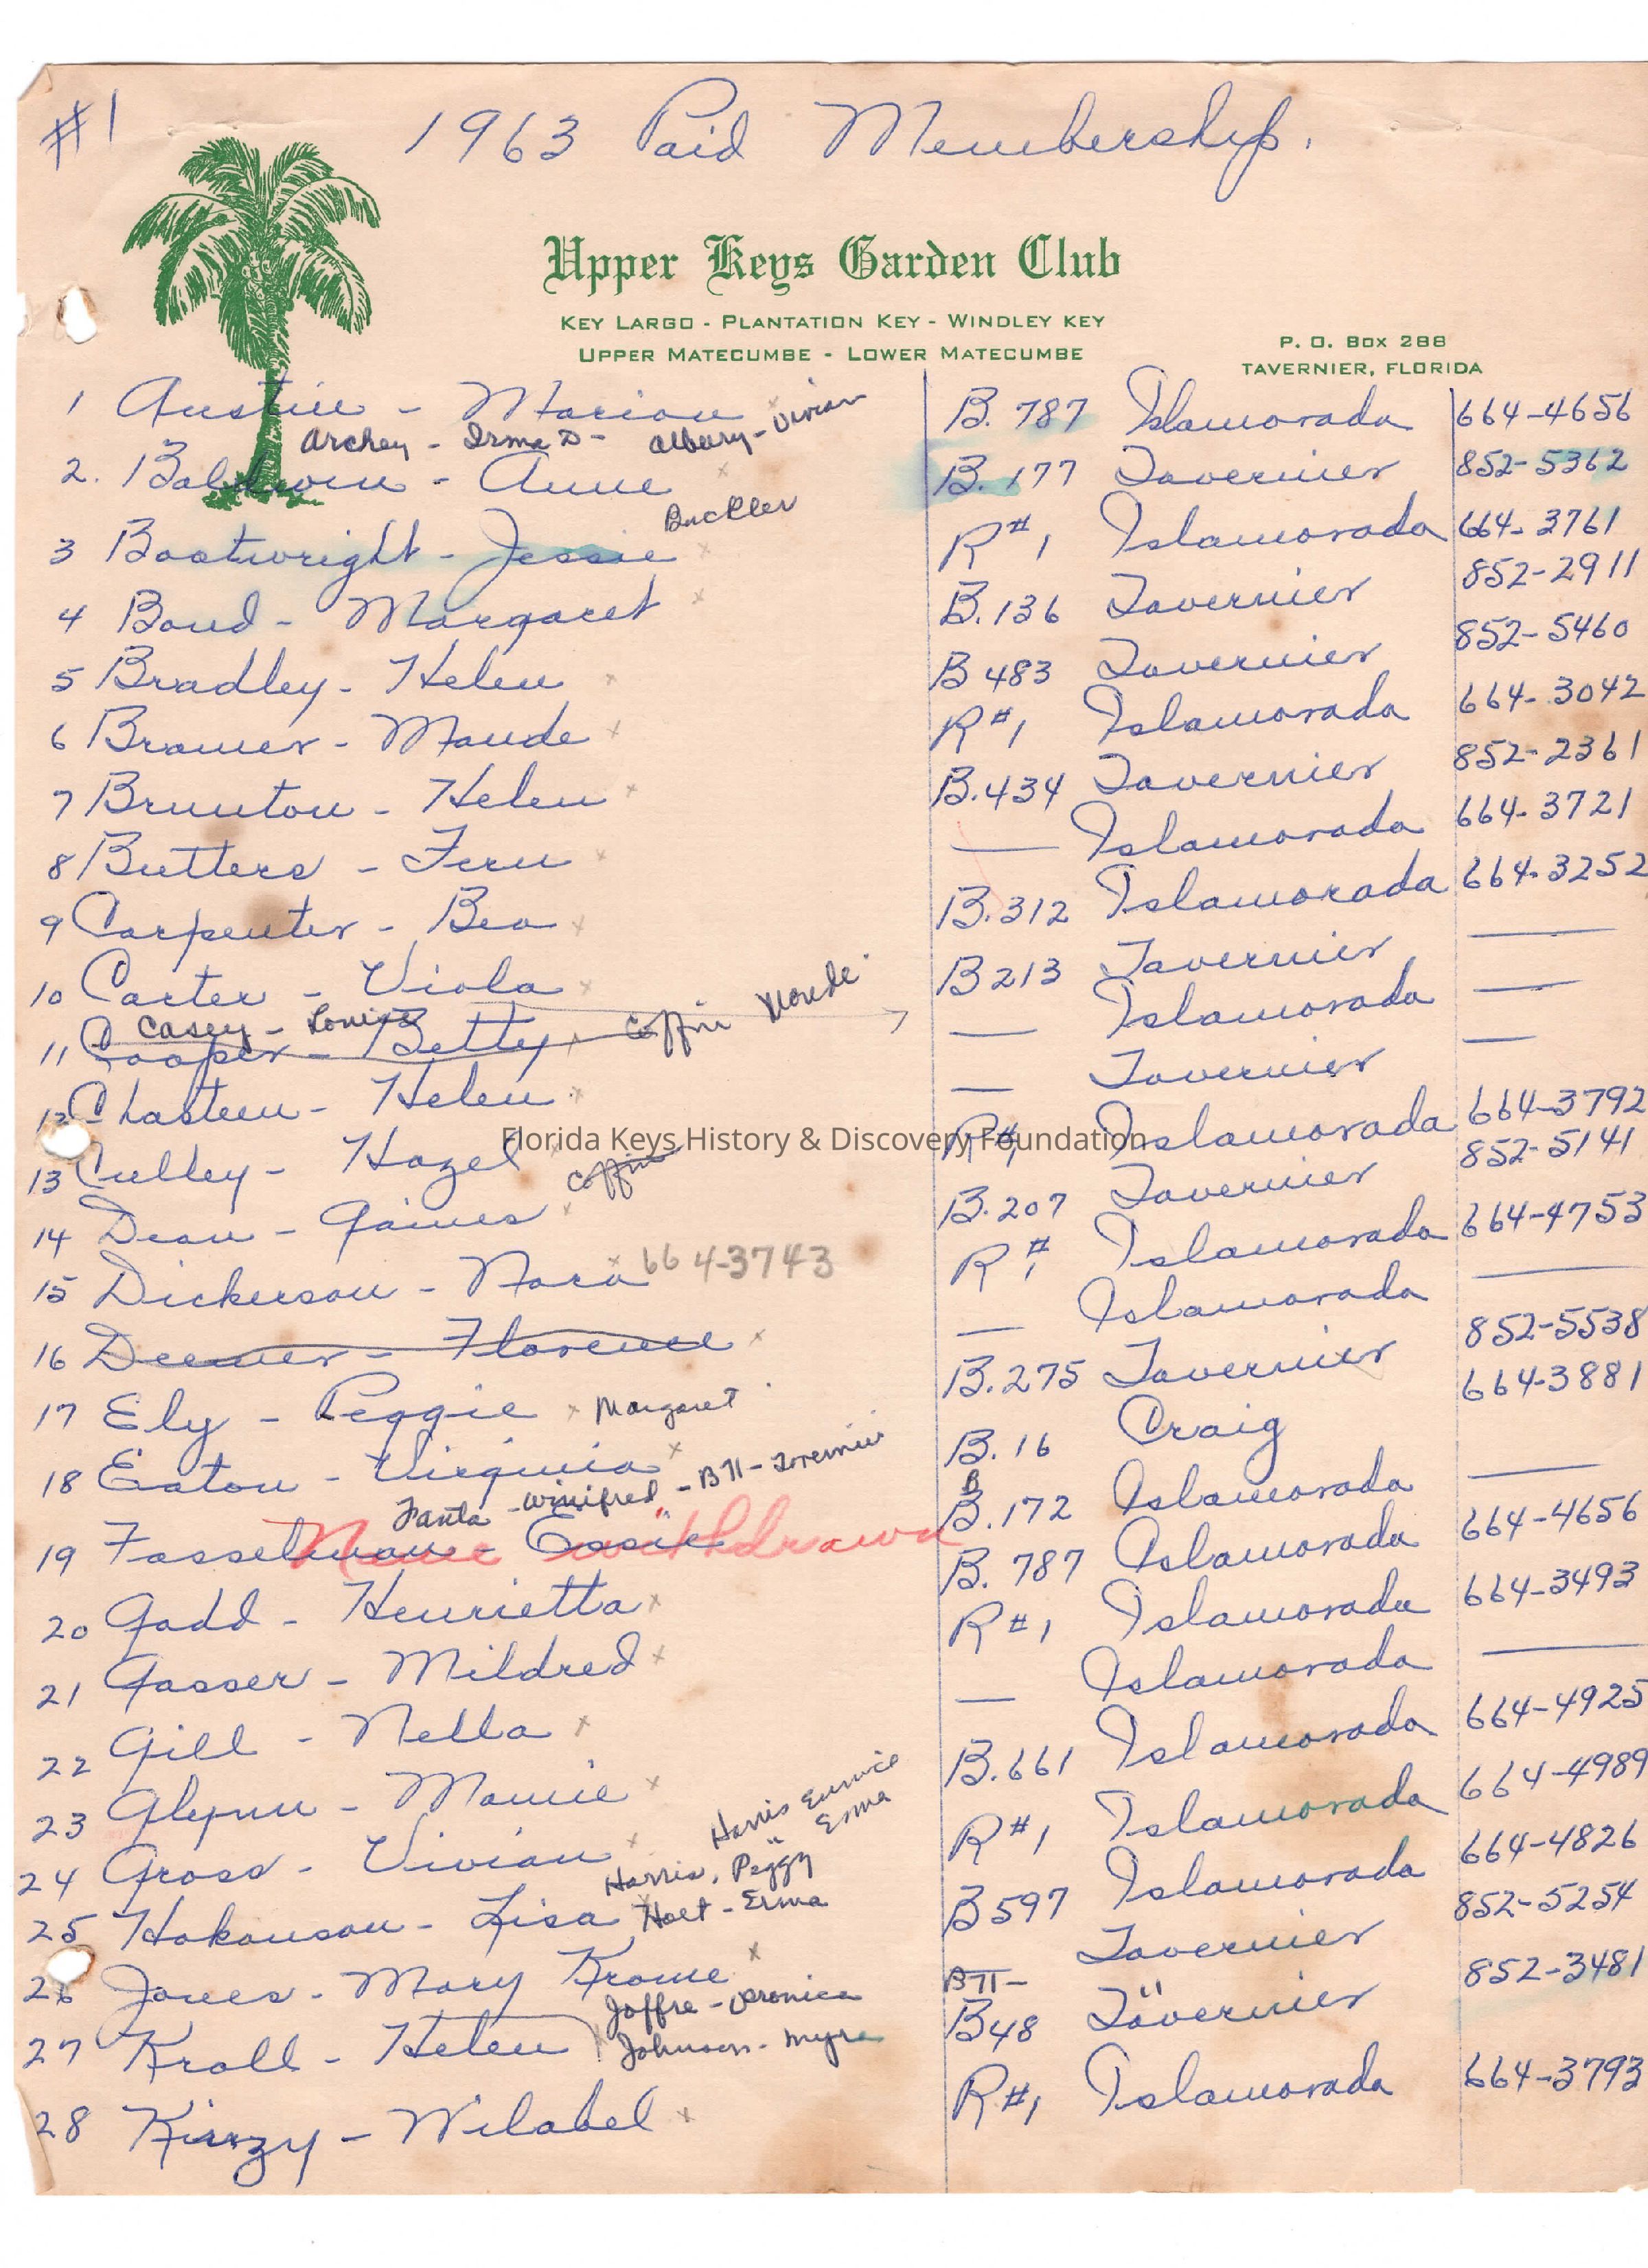 #1
1963 Paid Membership.
Upper Keys Garden Club
KEY LARGO - PLANTATION KEY - WINDLEY KEY
UPPER MATECUMBE - LOWER MATECUMBE
P. O. BOX 288
TAVERNIER, FLORIDA
1 Austin - Marion x B. 787 Islamorada 664-4656
Archey - Irma D - Albury - Vivian
2. Baldwin - Anne x B. 177 Tavernier 852-5362
Buckler
3 Boatwright - Jessie x R#1 Islamorada 664-3761
4 Bond - Margaret x B. 136 Tavernier 852-2911
5 Bradley - Helen x B 483 Tavernier 852-5460
6 Bramer - Maude x R#1 Islamorada 664-3042
7 Brunton - Helen x B. 434 Tavernier 852-2361
8 Butters - Fern x — Islamorada 664-3721
9 Carpenter - Bea x B. 312 Islamorada 664-3252
10 Carter - Viola x B 213 Tavernier —
Casey - Louise Coffin Maude
11 Cooper - Betty x — Islamorada —
12 Chasteen - Helen x — Tavernier —
Florida Keys History & Discovery Foundation
13 Culley - Hazel R#1 Islamorada 664-3792
Coffin
14 Dean - Gaines x B. 207 Tavernier 852-5141
15 Dickerson - Nora x 664-3743 R#1 Islamorada 664-4753
16 Deemer - Florence x — Islamorada —
17 Ely - Peggie x Margaret B. 275 Tavernier 852-5538
18 Eaton - Virginia x B. 16 Craig 664-3881
Fanta - Winifred - B 71 - Tavernier
19 Fasselman - Essie B. 172 Islamorada —
Name withdrawn
20 Gadd - Henrietta x B. 787 Islamorada 664-4656
21 Gasser - Mildred x R#1 Islamorada 664-3493
22 Gill - Nella x — Islamorada —
23 Glynn - Mamie x B. 661 Islamorada 664-4925
Harris Eunice
" Erma
24 Gross - Vivian x R#1 Islamorada 664-4989
Harris, Peggy
25 Hakanson - Lisa x B 597 Islamorada 664-4826
Holt - Erma
26 Jones - Mary Krome x Tavernier 852-5254
Joffre - Veronica B 71 - "
27 Kroll - Helen B 48 Tavernier 852-3481
Johnson - Myra
28 Kinzy - Wilabel x R#1 Islamorada 664-3793